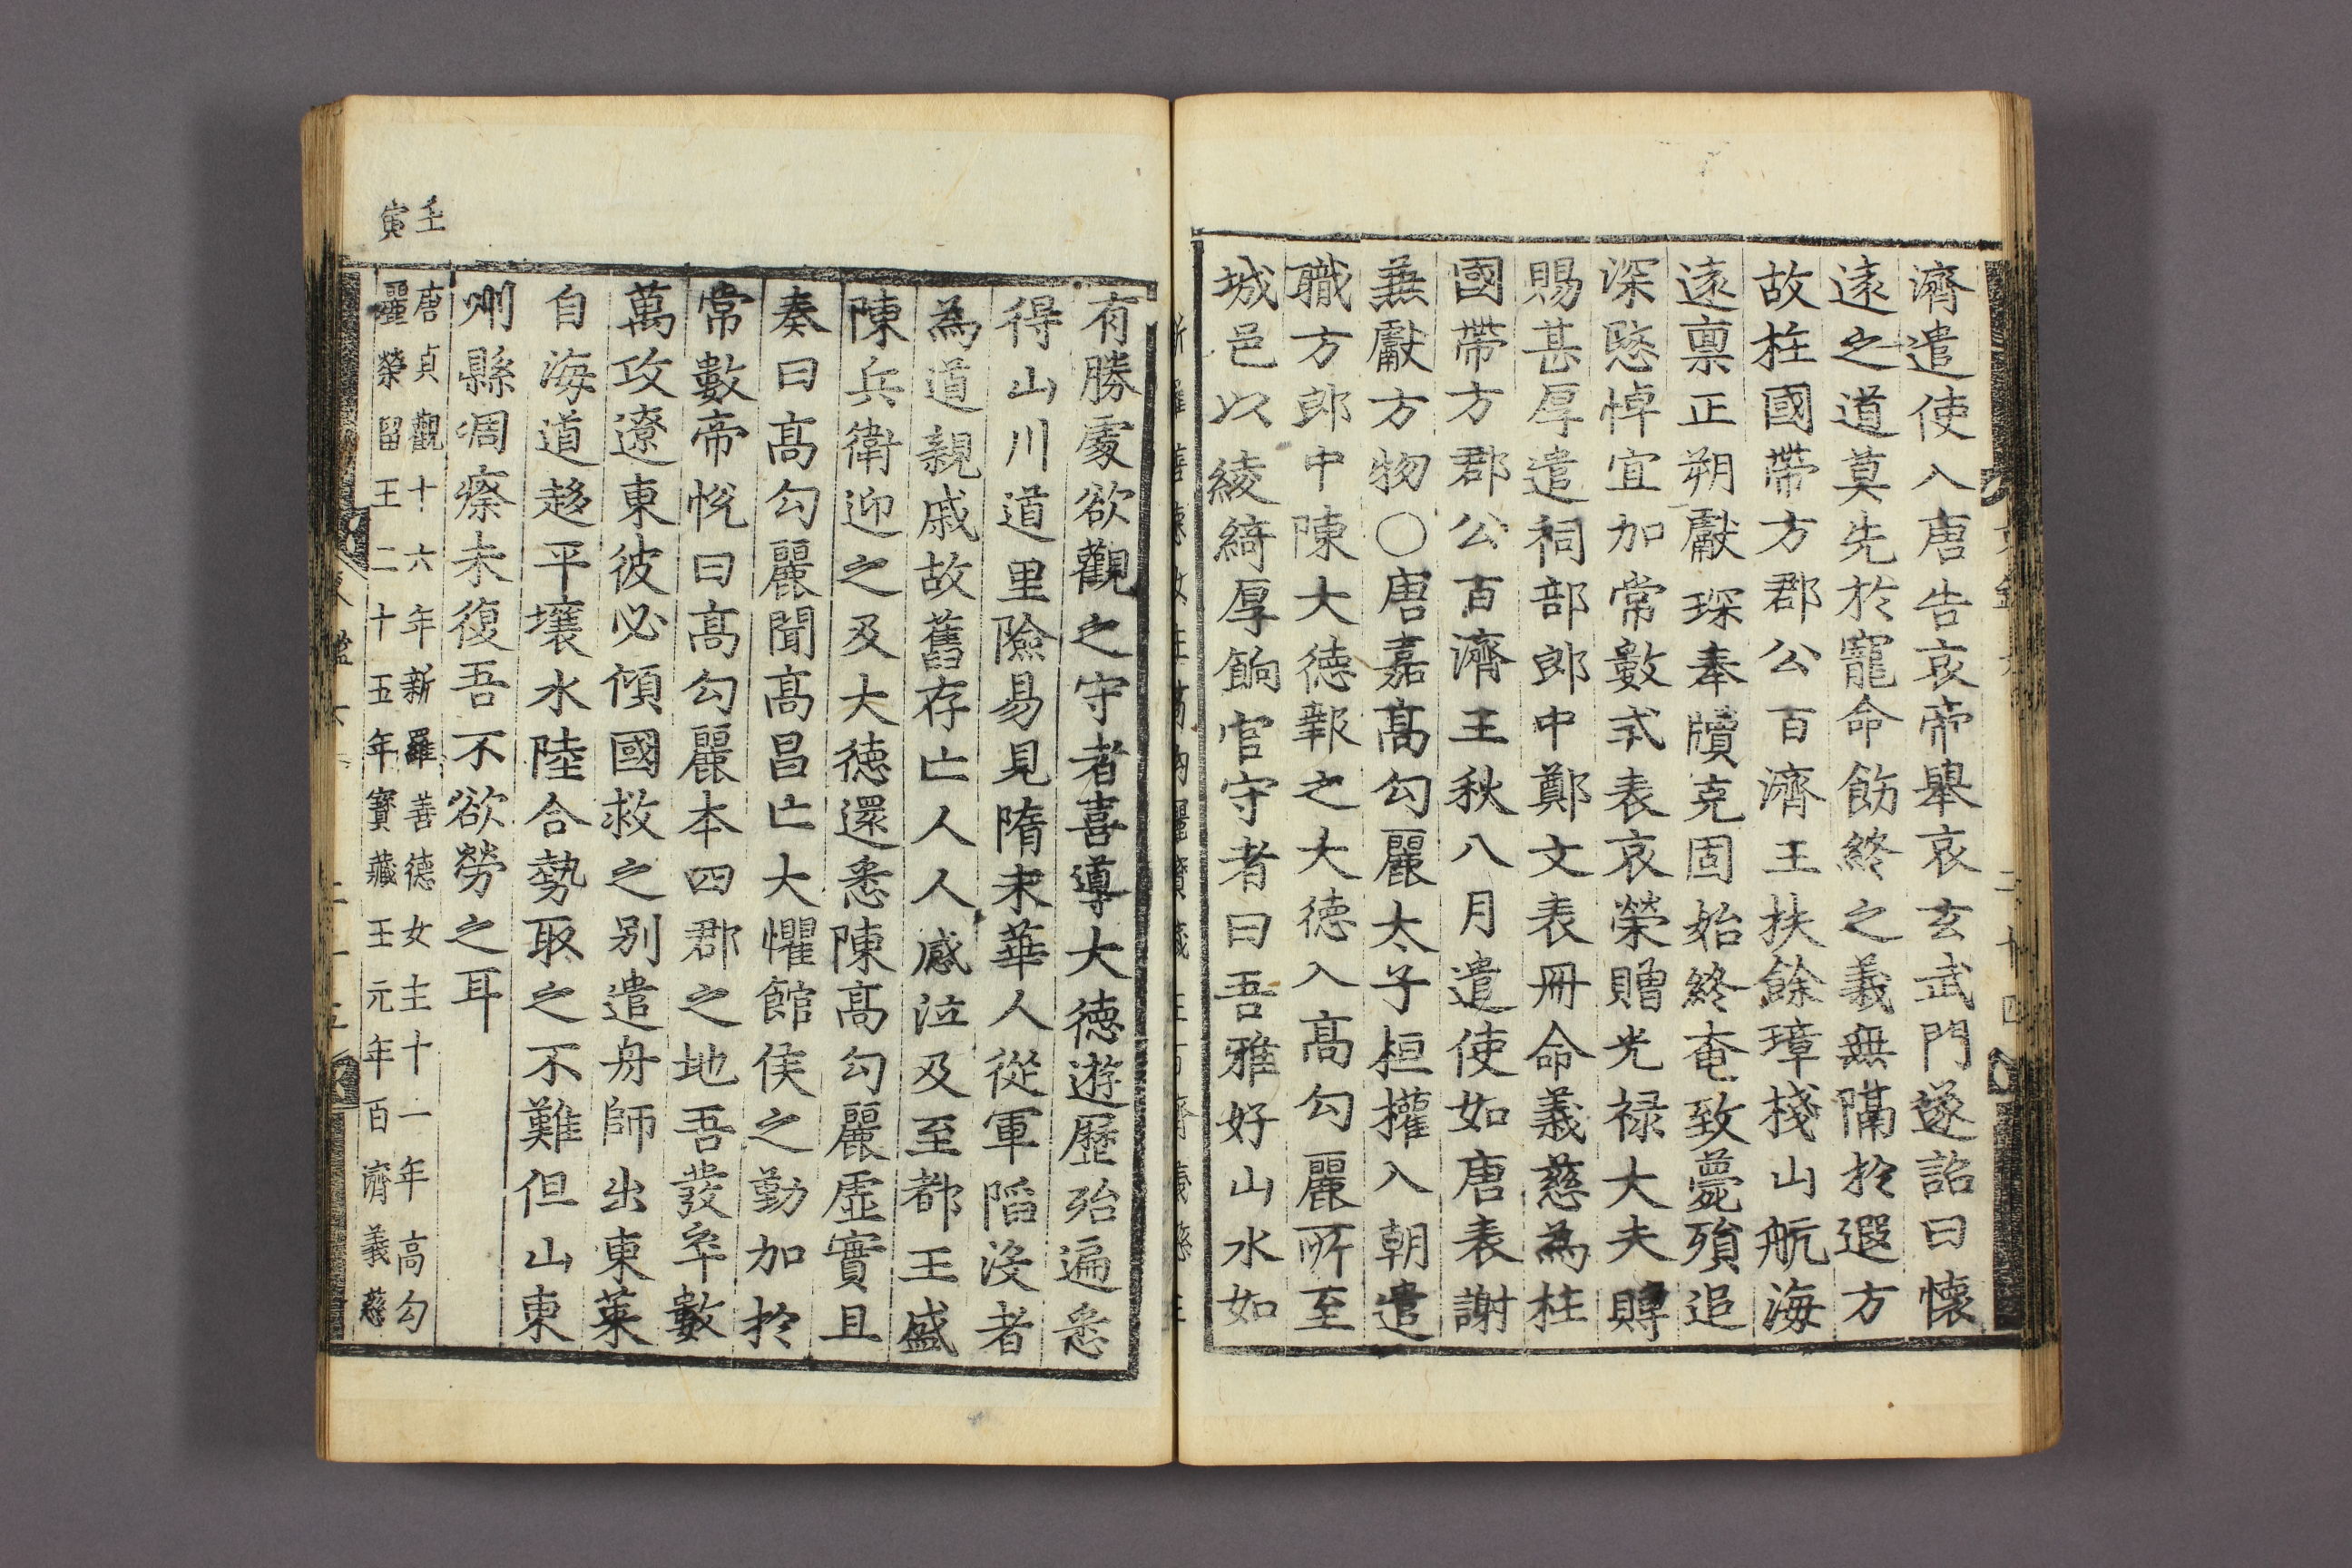 濟遣使入唐告哀帝舉哀玄武門遂詔曰懷
遠之道莫先於寵命飭終之義無隔於遐方
故柱國帶方郡公百濟王扶餘璋棧山航海
遠禀正朔獻琛奉牘克固始終奄致薨殞追
深愍悼宜加常數式表哀榮贈光禄大夫賻
賜甚厚遣祠部郎中鄭文表冊命義慈為柱
國帶方郡公百濟王秋八月遣使如唐表謝
兼獻方物〇唐嘉髙勾麗太子桓權入朝遣
職方郎中陳大徳報之大徳入髙勾麗所至
城邑以綾綺厚餉官守者曰吾雅好山水如
有勝處欲觀之守者喜導大徳遊歷殆遍悉
得山川道里險易見隋末華人從軍䧟没者
為道親戚故舊存亡人人感泣及至都王盛
陳兵衛迎之及大徳還悉陳髙勾麗虛實且
奏曰髙勾麗聞髙昌亡大懼館侯之勤加於
常數帝悅曰髙勾麗本四郡之地吾發卒數
萬攻遼東彼必傾國救之别遣舟師出東萊
自海道趍平壤水陸合勢取之不難但山東
州縣凋瘵未復吾不欲勞之耳
壬
寅
唐貞觀十六年新羅善德女主十一年高勾
麗榮留王二十五年寳藏王元年百濟義慈